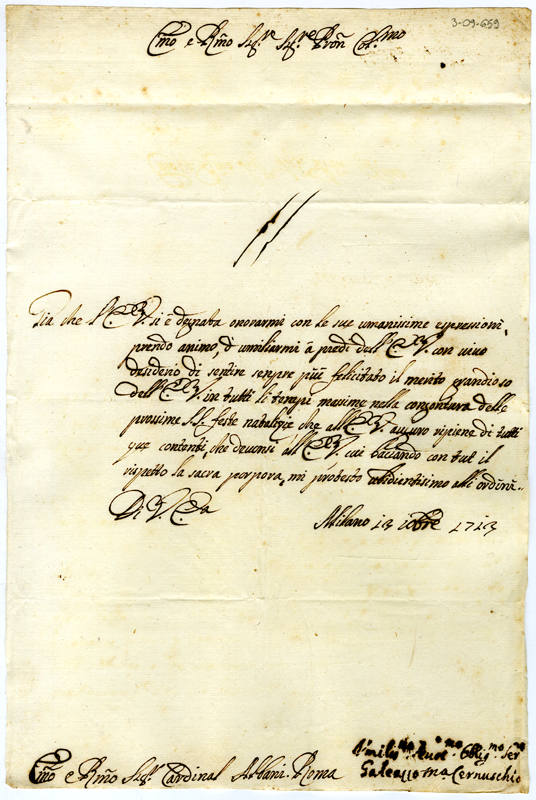 3-09-659
Emo e Rmo Sig.re Sig.re Pron Col.mo
Gia che l'E. V. si è degnata onorarmi con le sue umanissime espressioni,
prendo animo, d'umiliarmi à piedi dell'E. V. con vivo
desiderio di sentire sempre più felicitato il merito grandioso
dell'E. V. in tutti li tempi massime nella congontura delle
prossime S.S. feste natalizie che all'E. V. auguro ripiene di tutti
que contenti, che devonsi all'E. V. cui baciando con tut il
rispetto la sacra porpora, mi protesto ubidientissimo alli ordini..
Di V. E.za
Milano 13 Xbre 1713
Umiliss.mo Obblig.mo Ser.re
Galeazzo ma Cernuschio
Emo e Rmo Sig.r Cardinal Albani. Roma